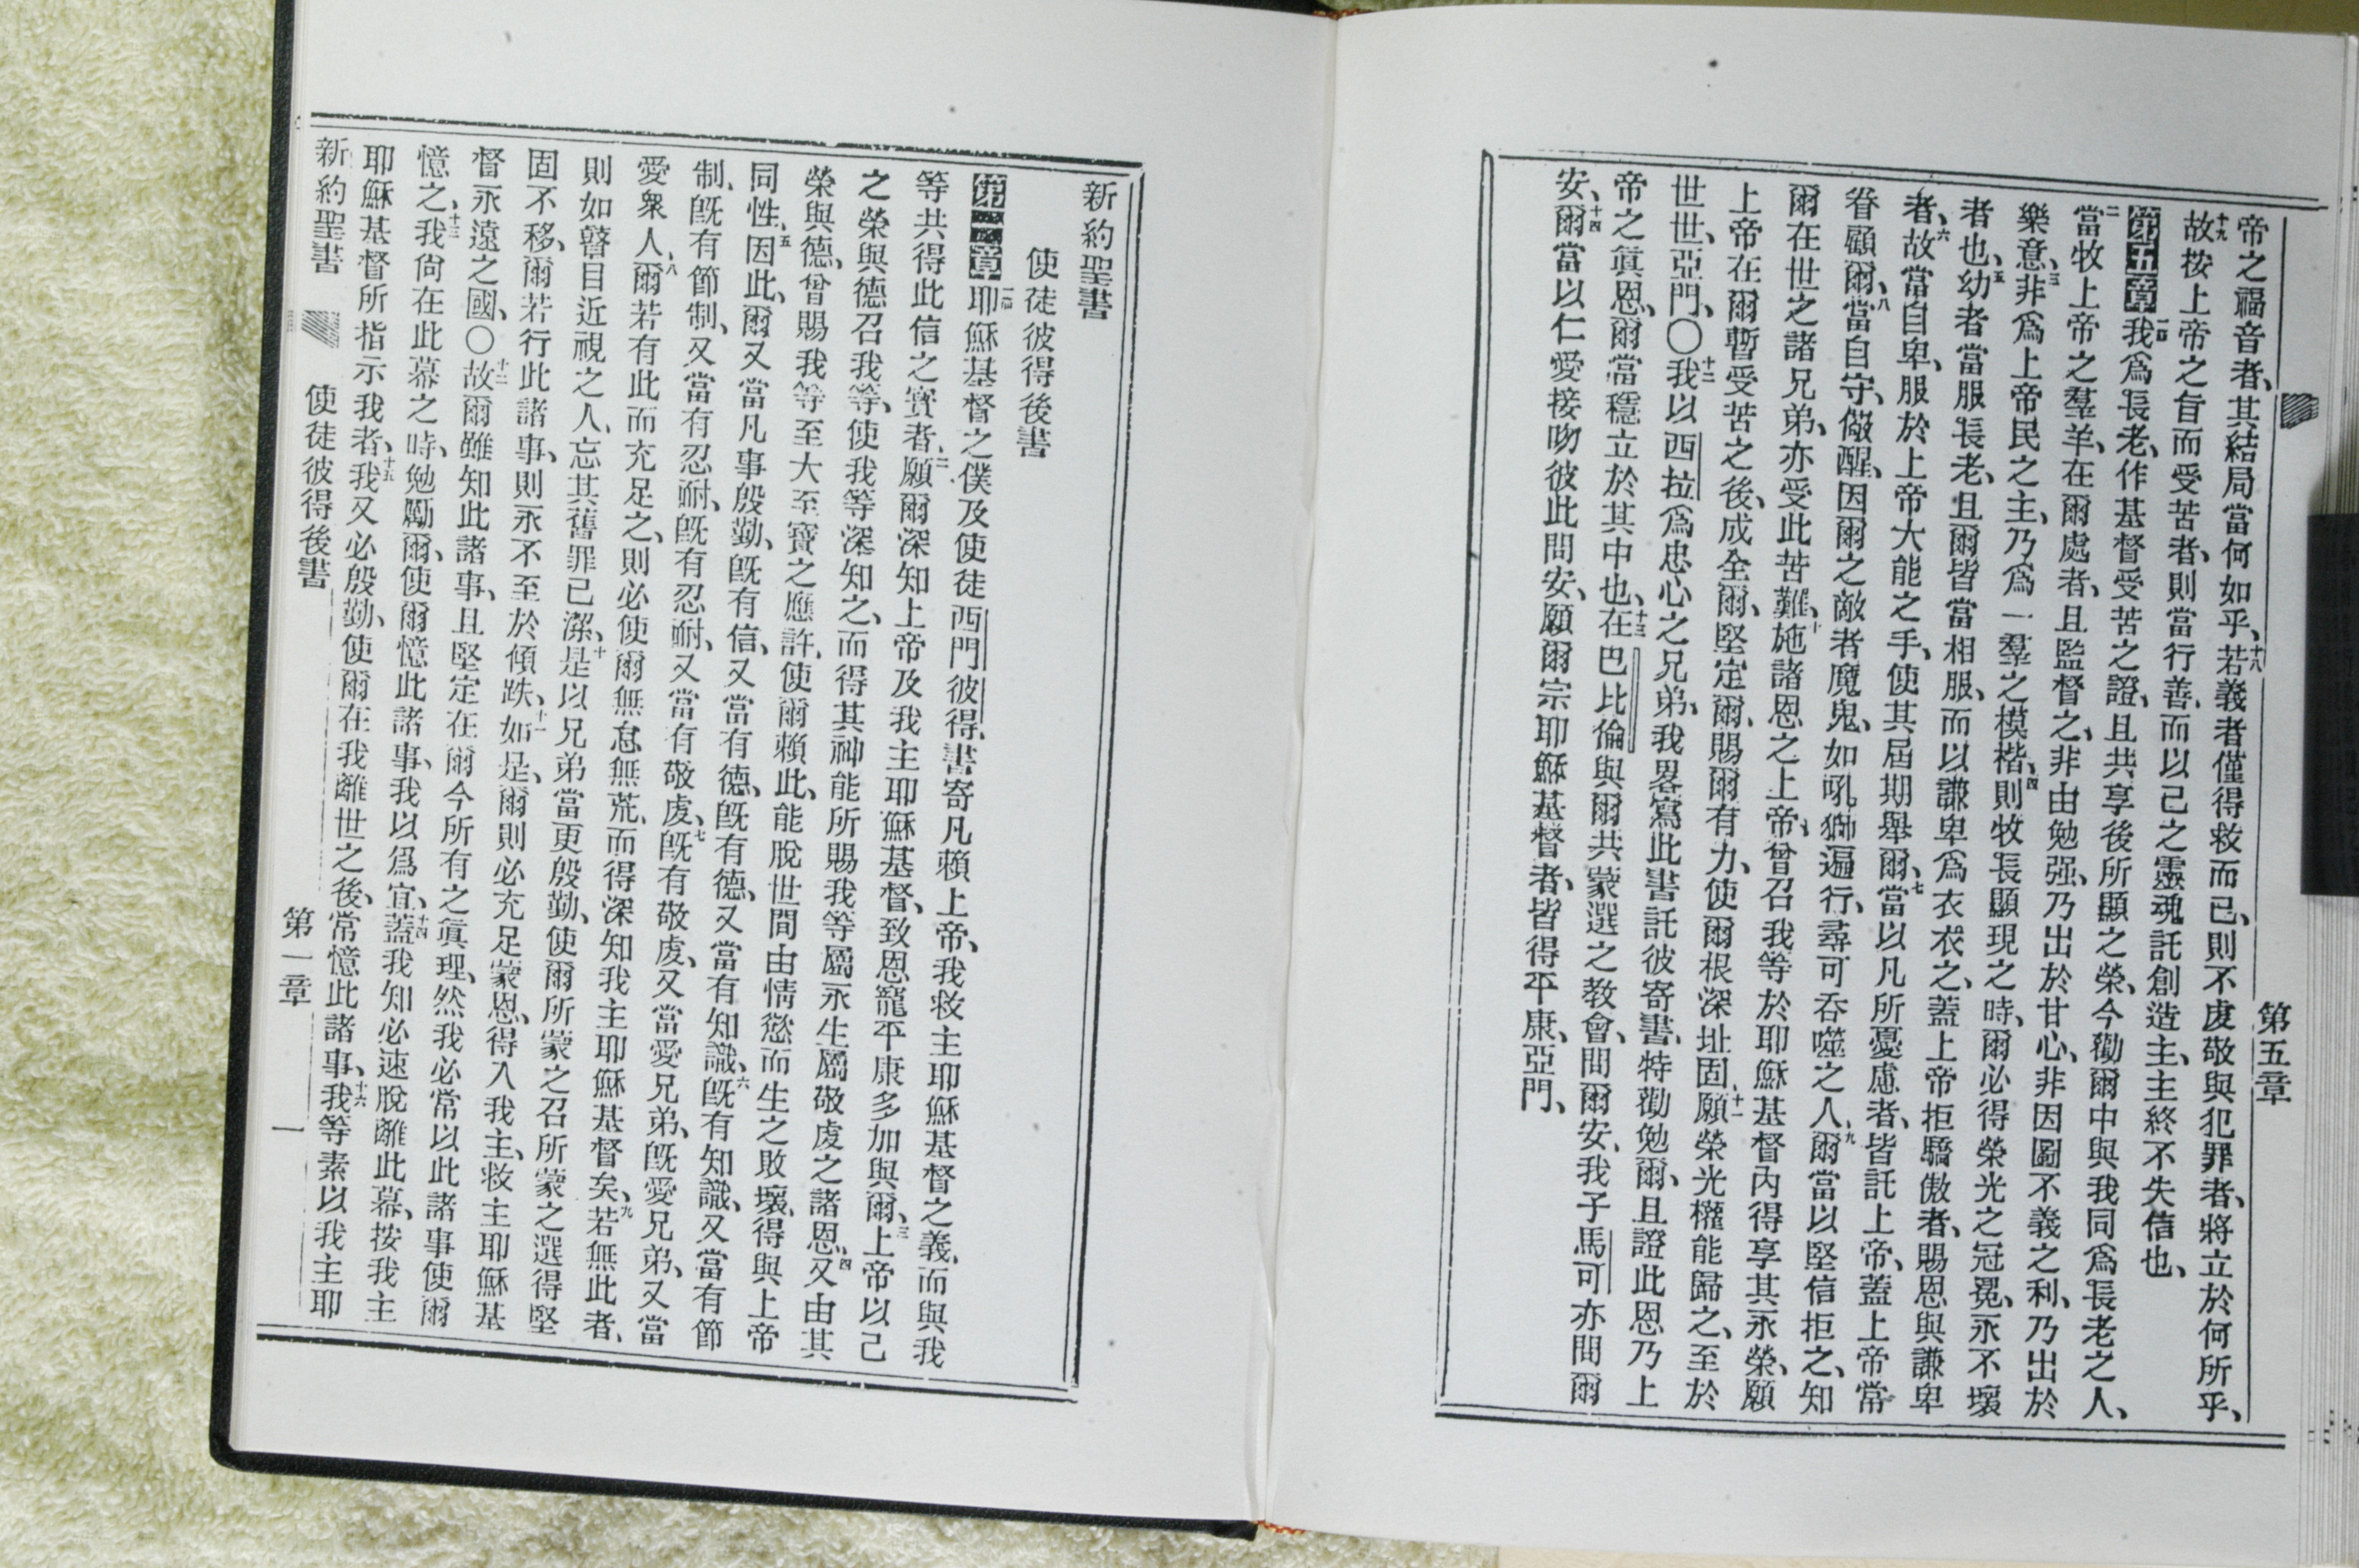 第五章
帝之福音者、其結局當何如乎、十八若義者僅得救而已、則不虔敬與犯罪者、將立於何所乎、
十九故按上帝之旨而受苦者、則當行善、而以己之靈魂託創造主、主終不失信也、
第五章 一我爲長老、作基督受苦之證、且共享後所顯之榮、今勸爾中與我同爲長老之人、
二當牧上帝之羣羊、在爾處者、且監督之、非由勉强、乃出於甘心、非因圖不義之利、乃出於
樂意、三非爲上帝民之主、乃爲一羣之模楷、四則牧長顯現之時、爾必得榮光之冠冕、永不壞
者也、五幼者當服長老、且爾皆當相服、而以謙卑爲衣衣之、蓋上帝拒驕傲者、賜恩與謙卑
者、六故當自卑、服於上帝大能之手、使其屆期舉爾、七當以凡所憂慮者、皆託上帝、蓋上帝常
眷顧爾、八當自守、儆醒、因爾之敵者魔鬼、如吼獅遍行、尋可吞噬之人、九爾當以堅信拒之、知
爾在世之諸兄弟、亦受此苦難、十施諸恩之上帝、曾召我等於耶穌基督內得享其永榮、願
上帝在爾暫受苦之後、成全爾、堅定爾、賜爾有力、使爾根深址固、十一願榮光權能歸之、至於
世世、亞門、○十二我以西拉爲忠心之兄弟、我畧寫此書託彼寄書、特勸勉爾、且證此恩乃上
帝之眞恩、爾當穩立於其中也、十三在巴比倫與爾共蒙選之教會、問爾安、我子馬可亦問爾
安、十四爾當以仁愛接吻彼此問安、願爾宗耶穌基督者、皆得平康、亞門、
新約聖書
使徒彼得後書
第一章 一耶穌基督之僕及使徒西門彼得、書寄凡賴上帝、我救主耶穌基督之義、而與我
等共得此信之寶者、二願爾深知上帝及我主耶穌基督、致恩寵平康多加與爾、三上帝以己
之榮與德召我等、使我等深知之、而得其神能所賜我等屬永生屬敬虔之諸恩、四又由其
榮與德、曾賜我等至大至寶之應許、使爾賴此、能脫世間由情慾而生之敗壞、得與上帝
同性、五因此、爾又當凡事殷勤、旣有信、又當有德、旣有德、又當有知識、六旣有知識、又當有節
制、旣有節制、又當有忍耐、旣有忍耐、又當有敬虔、七旣有敬虔、又當愛兄弟、旣愛兄弟、又當
愛衆人、八爾若有此而充足之、則必使爾無怠無荒、而得深知我主耶穌基督矣、九若無此者、
則如瞽目近視之人、忘其舊罪已潔、十是以兄弟當更殷勤、使爾所蒙之召所蒙之選得堅
固不移、爾若行此諸事、則永不至於傾跌、十一如是、爾則必充足蒙恩、得入我主、救主耶穌基
督永遠之國、○十二故爾雖知此諸事、且堅定在爾今所有之眞理、然我必常以此諸事使爾
憶之、十三我尙在此幕之時、勉勵爾、使爾憶此諸事、我以爲宜、十四蓋我知必速脫離此幕、按我主
耶穌基督所指示我者、十五我又必殷勤、使爾在我離世之後、常憶此諸事、十六我等素以我主耶
新約聖書 使徒彼得後書 第一章 一